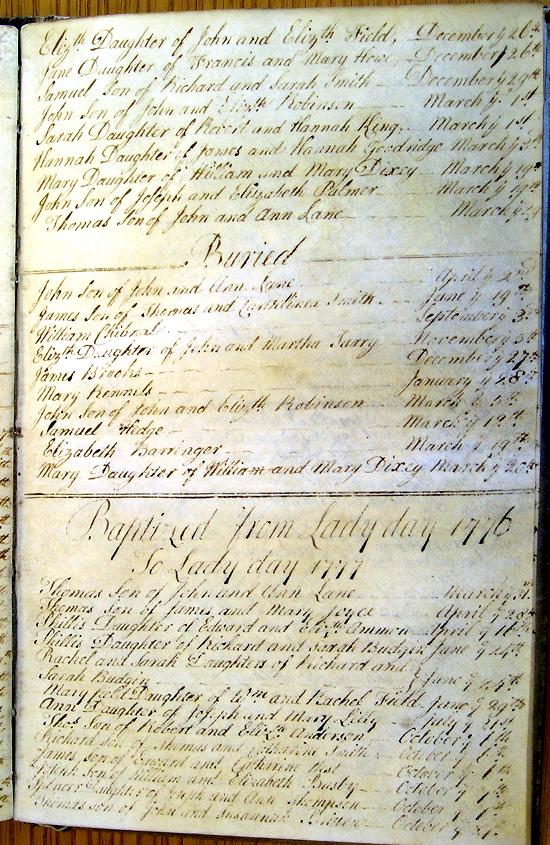 Eliz.th Daughter of John and Eliz.th Field, December y 26th
Jane Daughter of Francis and Mary Howe December y 26th
Samuel Son of Richard and Sarah Smith December y 29th
John Son of John and Eliz.th Robinson March y 1st
Sarah Daughter of Robert and Hannah King, March y 1st
Hannah Daughter of James and Hannah Goodridge March y 3d
Mary Daughter of William and Mary Dixey March y 19th
John Son of Joseph and Elizabeth Palmer March y 19th
Thomas Son of John and Ann Lane March y 24
Buried
John Son of John and Ann Lane April y 2nd
James Son of Thomas and Smith June y 19th
William September y 3d
Eliz.th Daughter of John and Martha Tarry November y 5th
James Brooks December y 27th
Mary Kennels January y 28th
John Son of John and Eliz.th Robinson March y 5th
Samuel Hedge March y 12th
Elizabeth Barringer March y 19th
Mary Daughter of William and Mary Dixey March y 20th
Baptized from Lady day 1776
To Lady day 1777
Thomas Son of John and Ann Lane March y 31.
Thomas Son of James and Mary Joyce April y 28th
Phillis Daughter of Edward and Eliz.th Ammon April y 16th
Phillis Daughter of Richard and Sarah Budgin June y 24th
Rachel and Sarah Daughters of Richard and
Sarah Budgin June y 24th
Mary Daughter of Wm and Rachel Field June y 29th
Ann Daughter of Joseph and Mary July y 21st
Thos. Son of Robert and Eliz.th Anderson October y 1th
Richard Son of Thomas and Catharine Smith October y 6th
James Son of Edward and Catharine October y 1th
Son of William and Elizabeth October y 1th
Spencer Daughter of Joseph and Ann Thompson October y 1th
Thomas son of John and Susannah October y 21